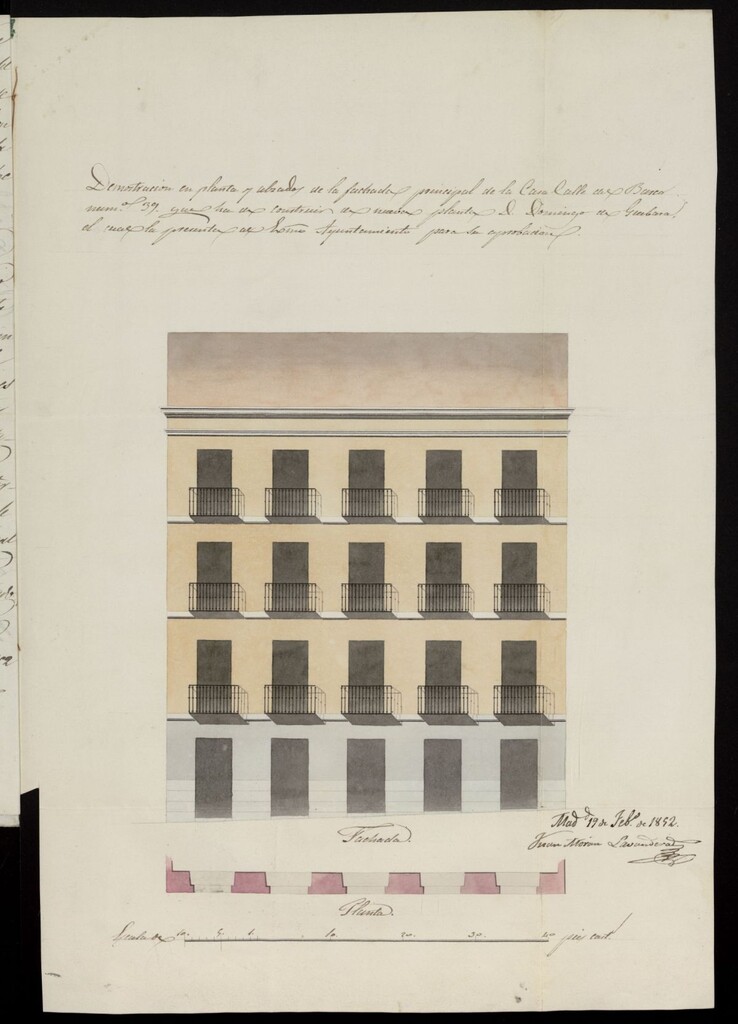 Demostracion en planta y alzado de la fachada principal de la Casa Calle del Barco
num.º 39 que ha de construir de nueva planta D. Domingo de
el cual la presenta al Exmo Ayuntamiento para su aprobacion.
Mad.d 19 de Feb.o de 1852.
Juan Moran Lavandera
Fachada.
Planta.
Escala de 10. 5. 1. 10. 20. 30. 40 pies cast.s